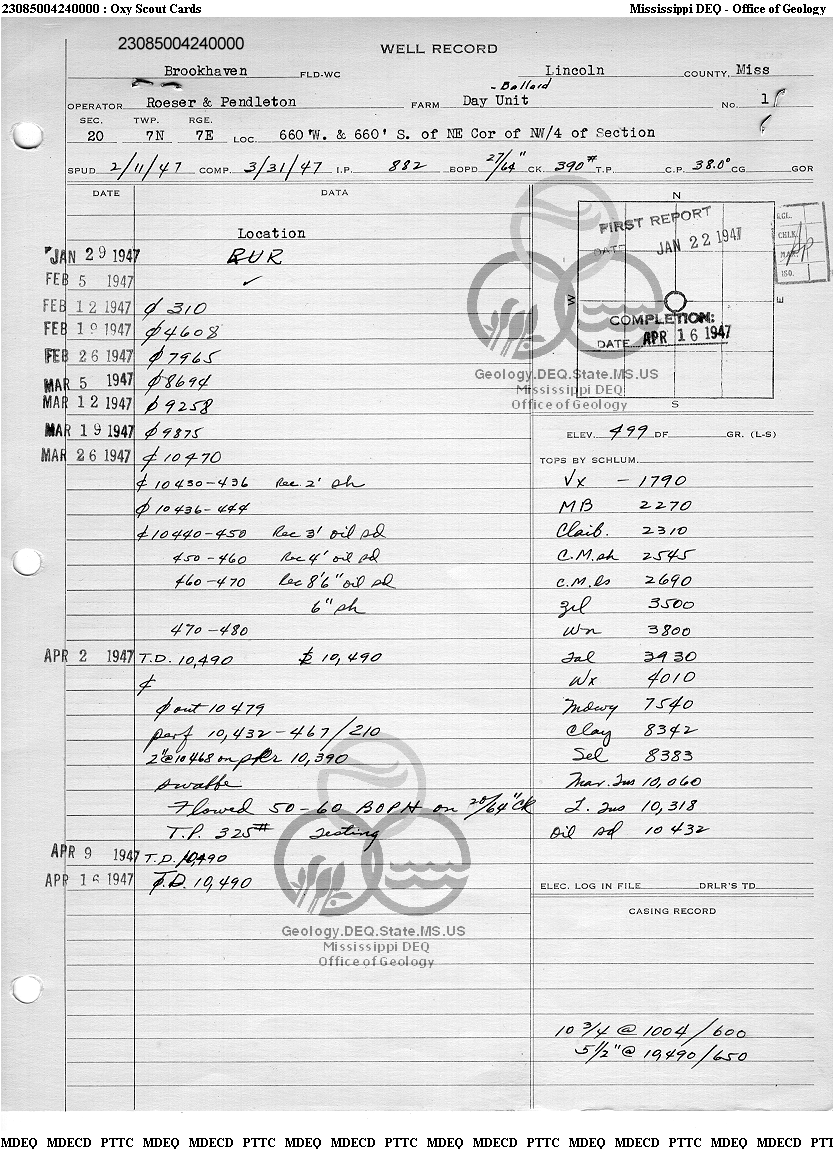 23085004240000 : Oxy Scout Cards Mississippi DEQ - Office of Geology
23085004240000
WELL RECORD
Brookhaven FLD-WC Lincoln COUNTY, Miss
- Ballard
OPERATOR Roeser & Pendleton FARM Day Unit No. 1
SEC. TWP. RGE.
20 7N 7E LOC. 660'W. & 660' S. of NE Cor of NW/4 of Section
SPUD 2/11/47 COMP. 3/31/47 I.P. 882 BOPD 27/64" CK. 390# T.P. C.P. 38.0° CG GOR
DATE DATA
Location
JAN 29 1947 RUR
FEB 5 1947 ✓
FEB 12 1947 ₵ 310
FEB 19 1947 ₵ 4608
FEB 26 1947 ₵ 7965
MAR 5 1947 ₵ 8694
MAR 12 1947 ₵ 9258
MAR 19 1947 ₵ 9875
MAR 26 1947 ₵ 10470
₵ 10430-436 Rec. 2' sh
₵ 10436-444
₵ 10440-450 Rec 3' oil sd
450-460 Rec 4' oil sd
460-470 Rec 8'6" oil sd
6" sh
470-480
APR 2 1947 T.D. 10,490 10,490
₵
₵ out 10479
perf 10,432-467/210
2" @ 10468 on pkr 10,390
swabbe
Flowed 50-60 BOPH on 20/64" CK
T.P. 325# Testing
APR 9 1947 T.D. 10,490
APR 16 1947 T.D. 10,490
N
W
E
S
FIRST REPORT
DATE JAN 22 1947
COMPLETION:
DATE APR 16 1947
RGL.
CHLK.
MAP.
ISO.
Geology.DEQ.State.MS.US
Mississippi DEQ
Office of Geology
ELEV. 499 DF GR. (L-S)
TOPS BY SCHLUM.
Vx - 1790
MB 2270
Claib. 2310
C.M. sh 2545
C.M. ls 2690
Zil 3500
Wn 3800
Tal 3930
Wx 4010
Mdwy 7540
Clay 8342
Sel 8383
Mar. Tus 10,060
L. Tus 10,318
Oil sd 10432
ELEC. LOG IN FILE DRLR'S TD
CASING RECORD
10 3/4 @ 1004/600
5 1/2" @ 10,490/650
Geology.DEQ.State.MS.US
Mississippi DEQ
Office of Geology
MDEQ MDECD PTTC MDEQ MDECD PTTC MDEQ MDECD PTTC MDEQ MDECD PTTC MDEQ MDECD PTTC MDEQ MDECD PTT